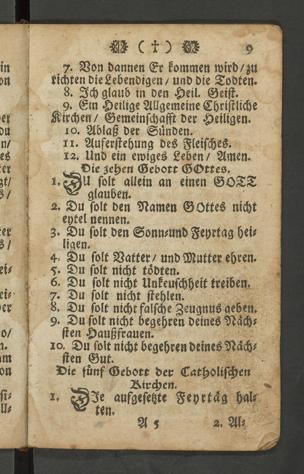 ( † ) 9
7. Von dannen Er kommen wird/ zu
richten die Lebendigen/ und die Todten.
8. Jch glaub in den Heil. Geist.
9. Ein Heilige Allgemeine Christliche
Kirchen/ Gemeinschafft der Heiligen.
10. Ablaß der Sünden.
11. Auferstehung des Fleisches.
12. Und ein ewiges Leben/ Amen.
Die zehen Gebott GOttes.
1. DU solt allein an einen GOTT
glauben.
2. Du solt den Namen GOttes nicht
eytel nennen.
3. Du solt den Sonn und Feyrtag hei-
ligen.
4. Du solt Vatter/ und Mutter ehren.
5. Du solt nicht tödten.
6. Du solt nicht Unkeuschheit treiben.
7. Du solt nicht stehlen.
8. Du solt nicht falsche Zeugnus geben.
9. Du solt nicht begehren deines Näch-
sten Haußfrauen.
10. Du solt nicht begehren deines Näch-
sten Gut.
Die fünf Gebott der Catholischen
Kirchen.
1. DJe aufgesetzte Feyrtäg hal-
ten.
A 5 2. Al-